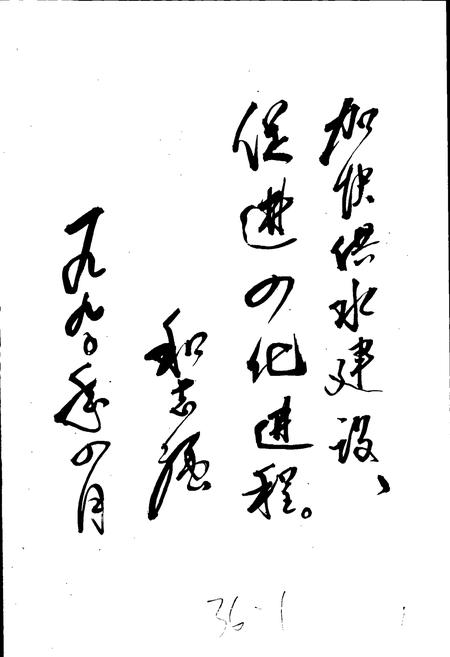 加快供水建设、
促进四化进程。
和志强
一九九〇年四月
36-1